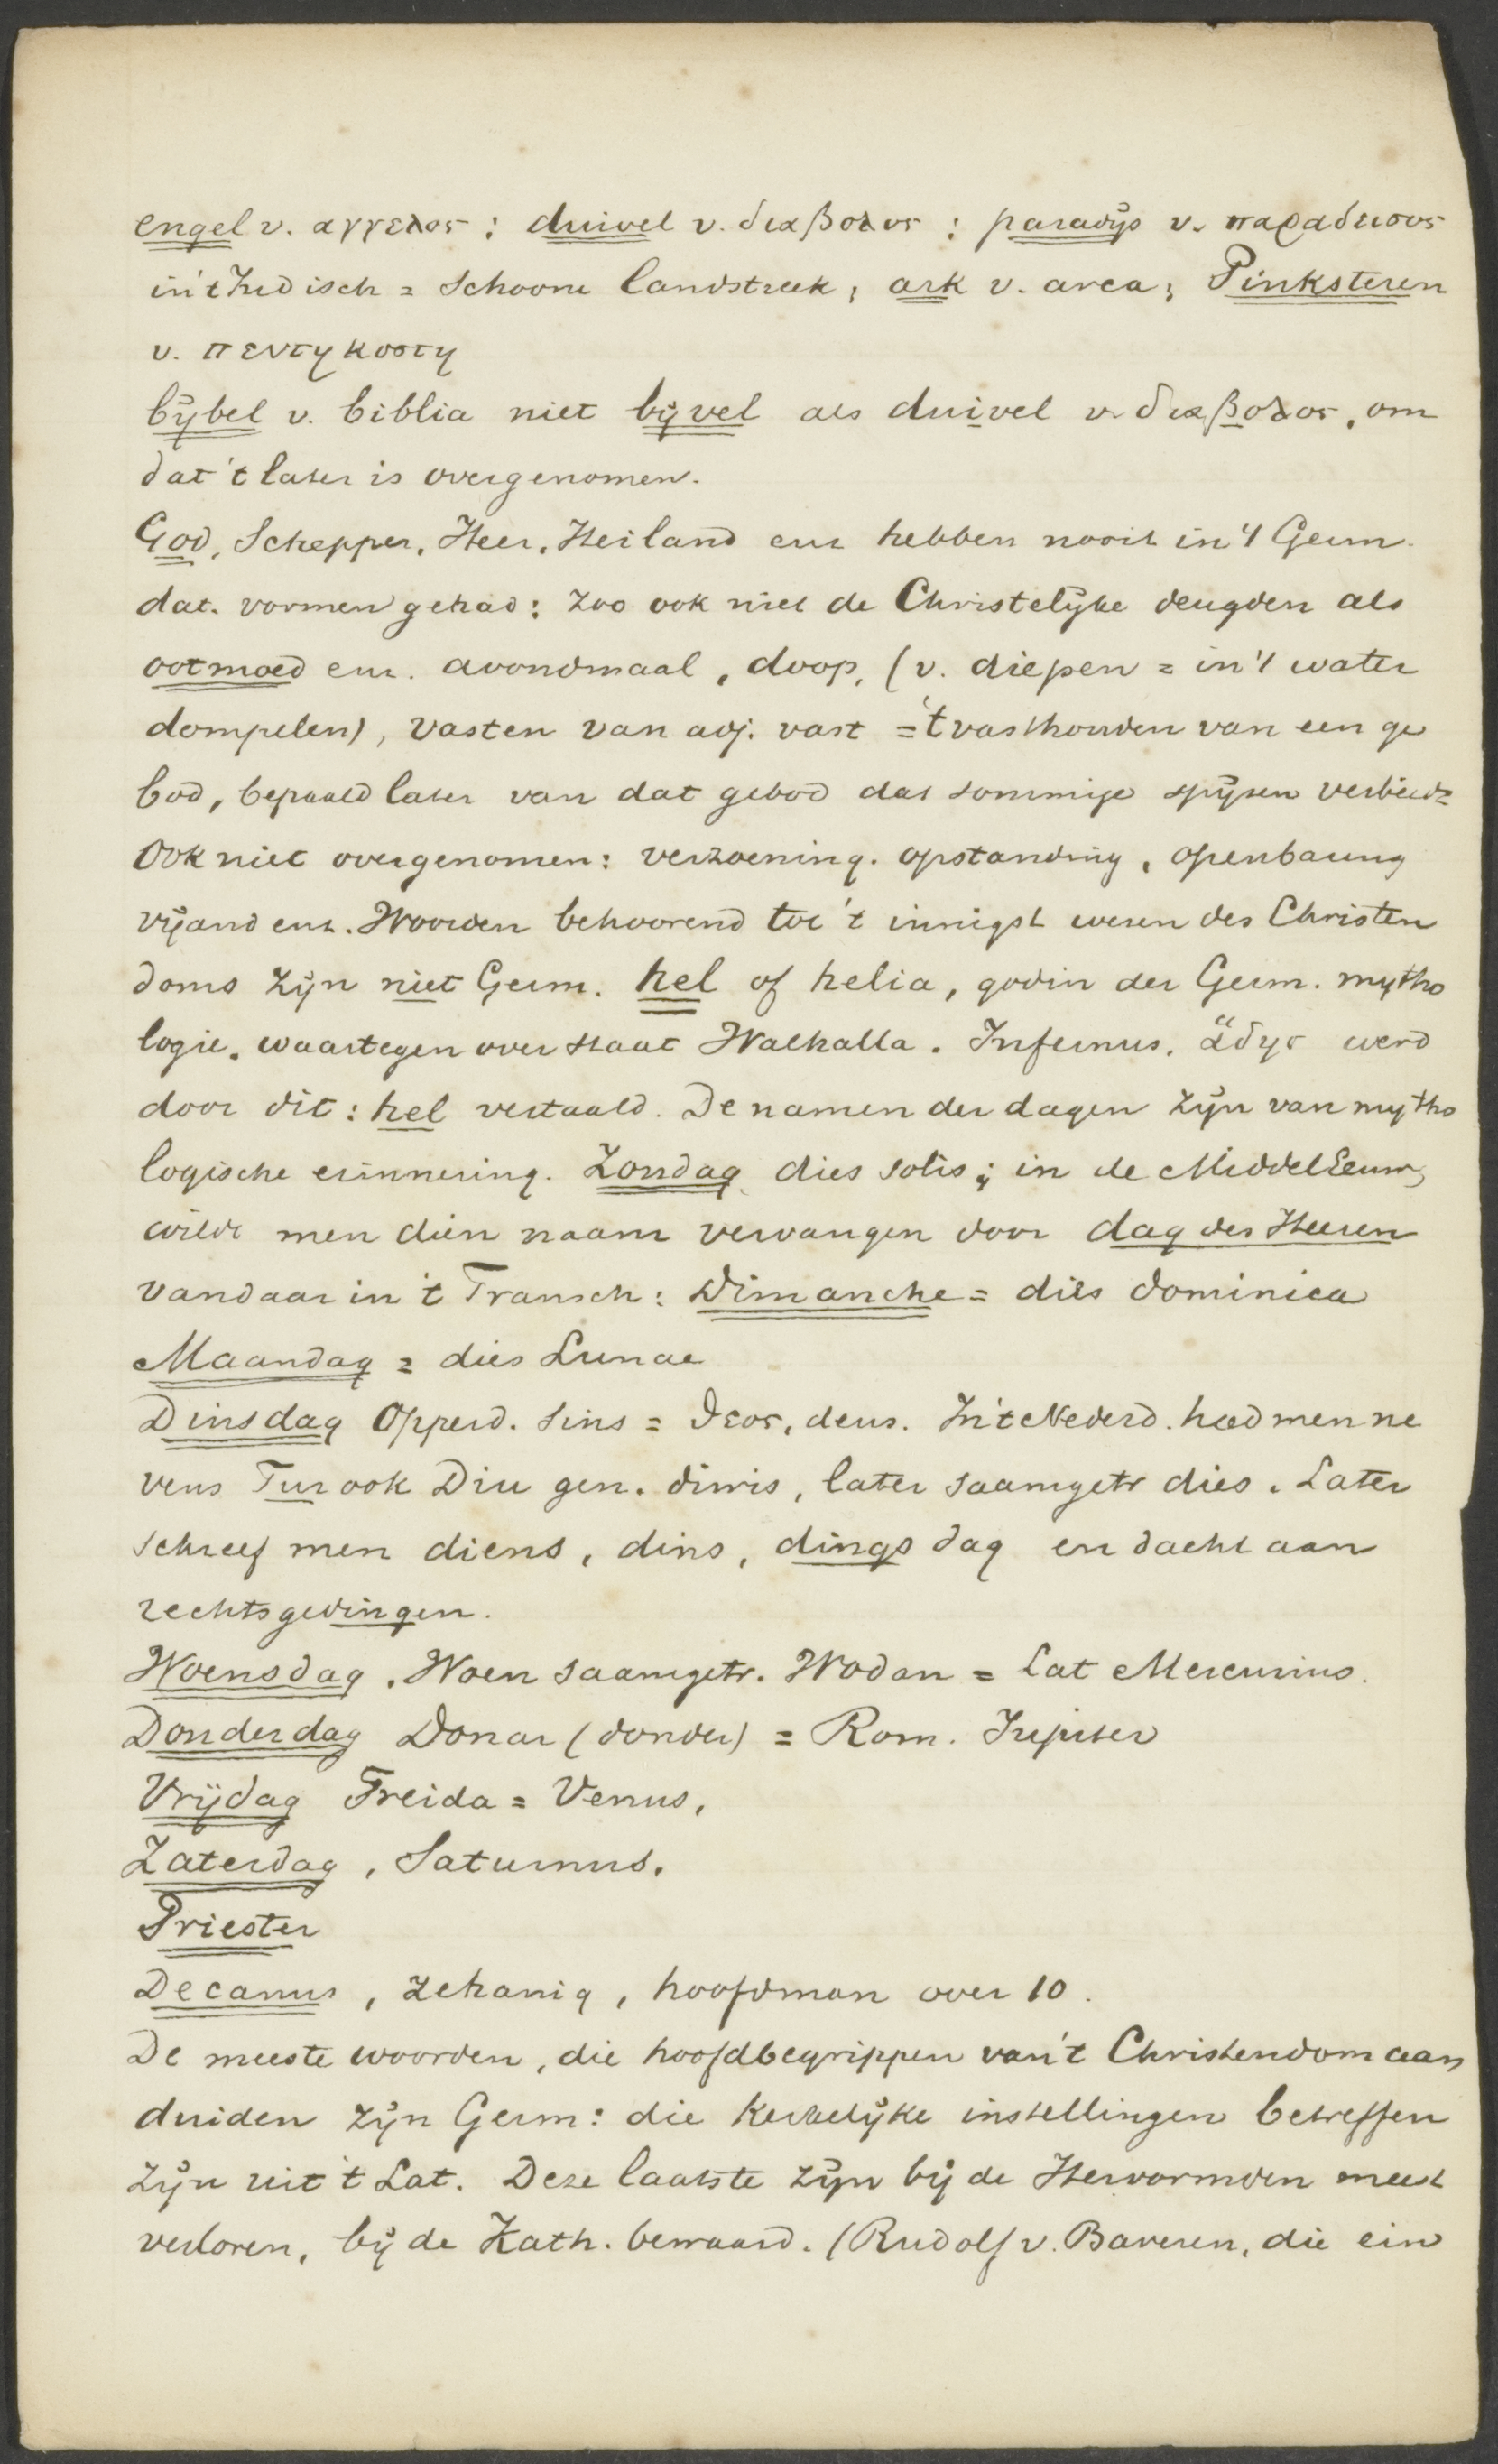 engel v. αγγελος ; duivel v. διαβολος ; paradijs v. παραδεισους
in 't Indisch = schoone landstreek, ark v. arca; Pinksteren
v. πεντηκοστη
bijbel v. biblia niet bijvel als duivel v. διαβολος, om
dat 't later is overgenomen.
God, Schepper, Heer, Heiland enz hebben nooit in 't Germ.
dat. vormen gehad: zoo ook niet de Christelijke deugden als
ootmoed enz. avondmaal, doop, (v. diepen = in 't water
dompelen), vasten van adj. vast = 't vasthouden van een ge
bod, bepaald later van dat gebod dat sommige spijzen verbiedt
Ook niet overgenomen: verzoening. opstanding, openbaring
vijand enz. Woorden behoorend tot 't innigst wezen des Christen
doms zijn niet Germ. hel of helia, godin der Germ. mytho
logie. waartegen over staat Walhalla. Infernus, ἅδης werd
door dit: hel vertaald. De namen der dagen zijn van mytho
logische erinnering. Zondag dies solis; in de MiddelEeuw,
wilde men dien naam vervangen door dag des Heeren
vandaar in 't Fransch: Dimanche = dies dominica
Maandag = dies Lunae
Dinsdag Opperd. sins = ϑεος, deus. In 't Nederd. had men ne
vens Tur ook Diu gen. diwis, later saamgetr dies. Later
schreef men diens, dins, dings dag en dacht aan
rechtsgedingen.
Woensdag. Woen saamgetr. Wodan = Lat Mercurius.
Donderdag Donar (donder) = Rom. Jupiter
Vrijdag Freida = Venus,
Zaterdag, Saturnus.
Priester
Decanus, zehanig, hoofdman over 10.
De meeste woorden, die hoofdbegrippen van 't Christendom aan
duiden zijn Germ: die kerkelijke instellingen betreffen
zijn uit 't Lat. Deze laatste zijn bij de Hervormden meest
verloren, bij de Kath. bewaard. (Rudolf v. Baveren, die ein